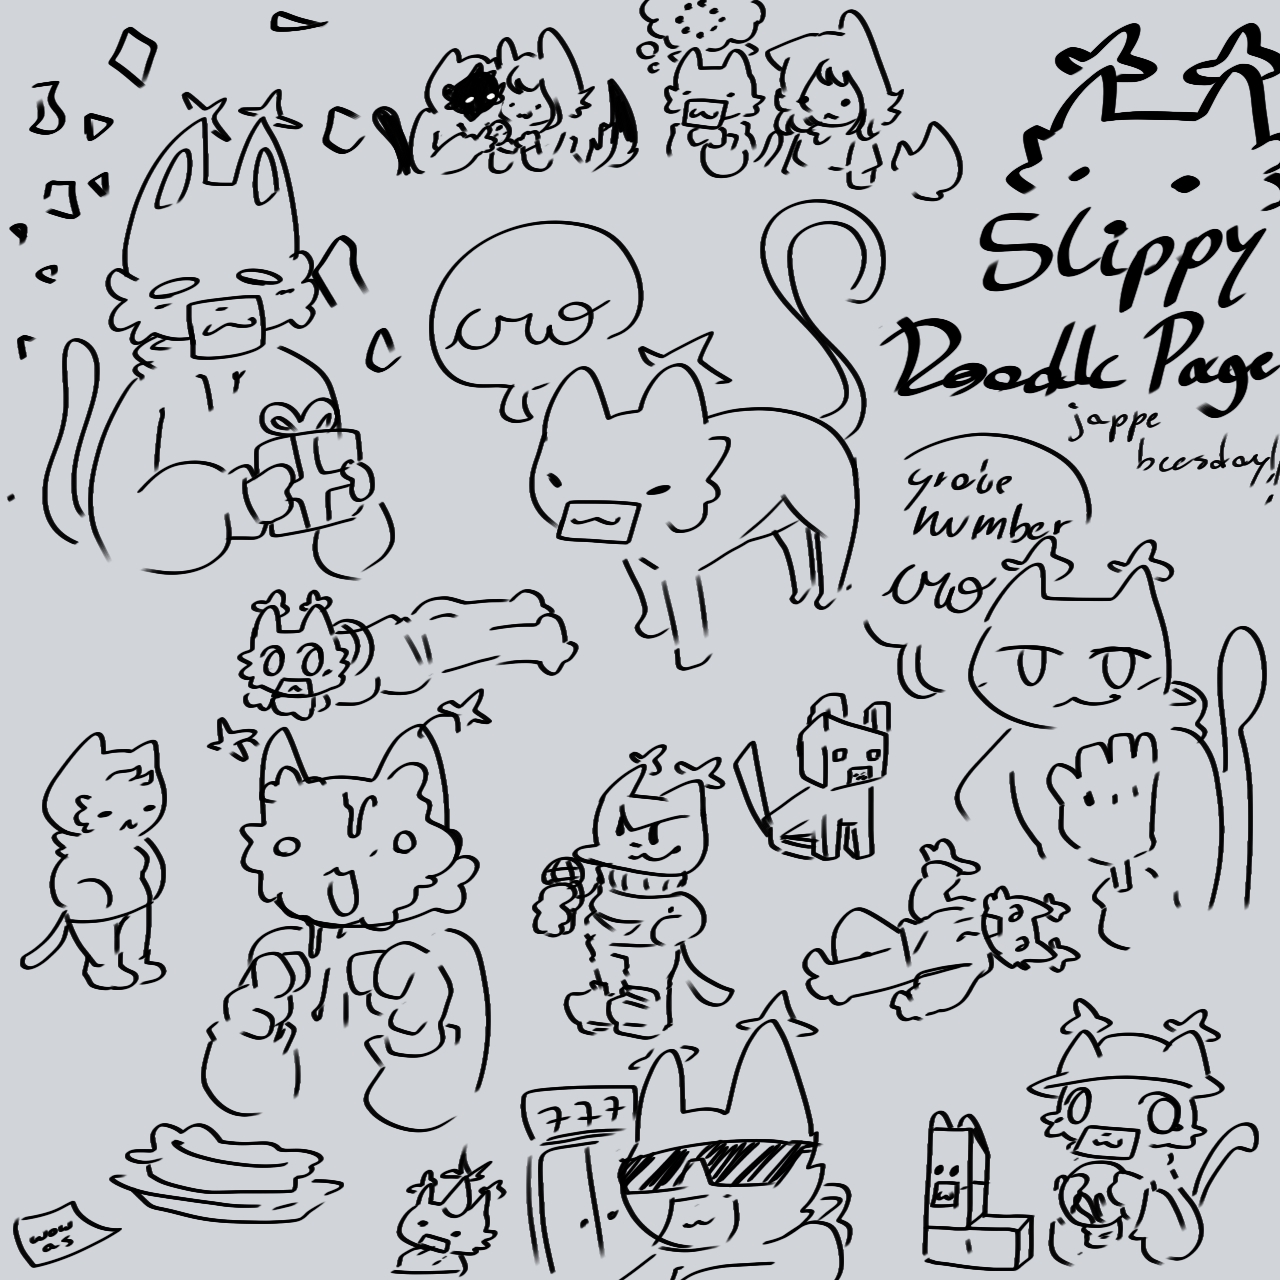 Slippy
Doodle Page
jappe
beesday!!
uwo
graie
number
uwo
777
wow
as